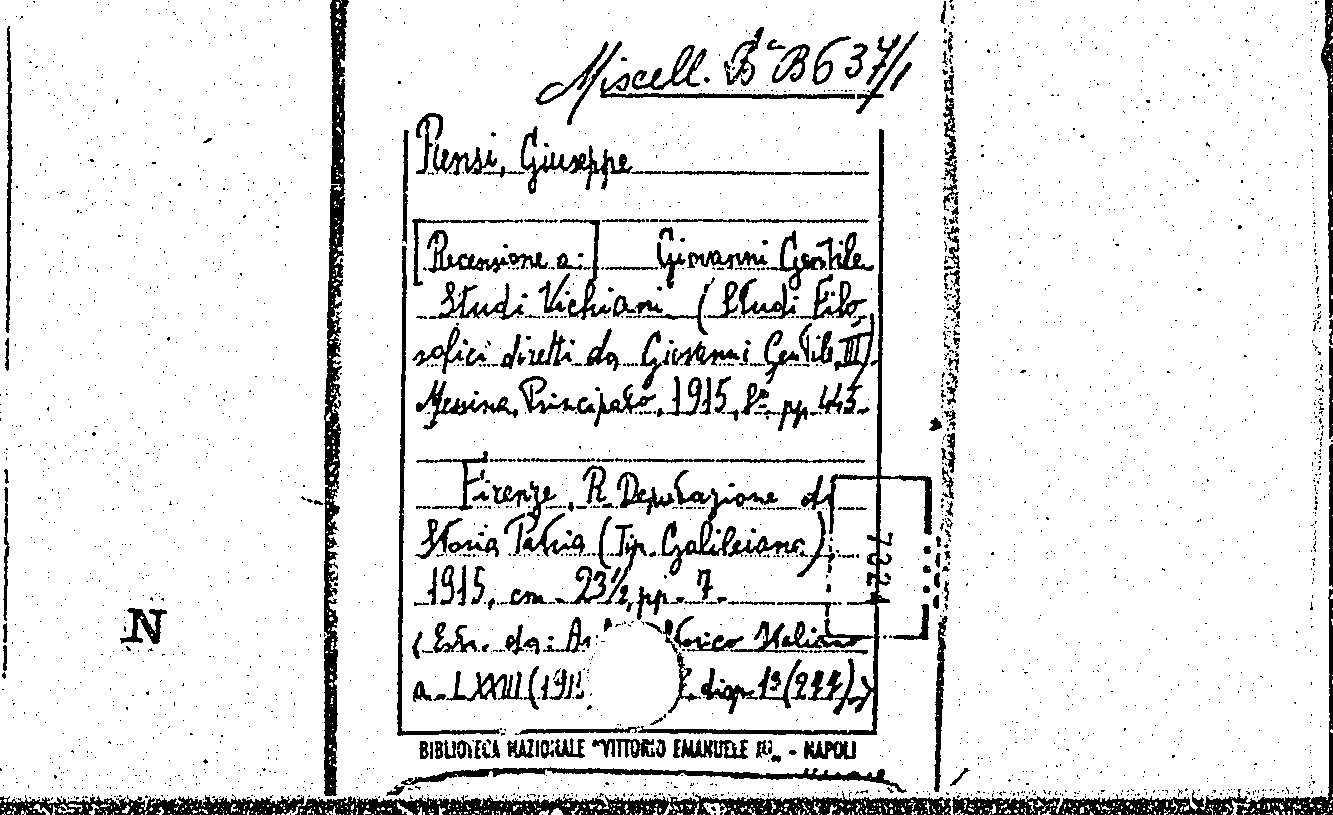 Miscell. Bª B637/1
Rensi, Giuseppe
[Recensione a:] Giovanni Gentile
Studi Vichiani (Studi Filo
sofici diretti da Giovanni Gentile, III)
Messina, Principato, 1915, 8º, pp. 445.
Firenze, R. Deputazione di
Storia Patria (Tip. Galileiana),
1915, cm. 23½, pp. 7.
(Estr. da: Italiano
a. LXXIII (191 disp. 1ª (277))
BIBLIOTECA NAZIONALE "VITTORIO EMANUELE III" - NAPOLI
N